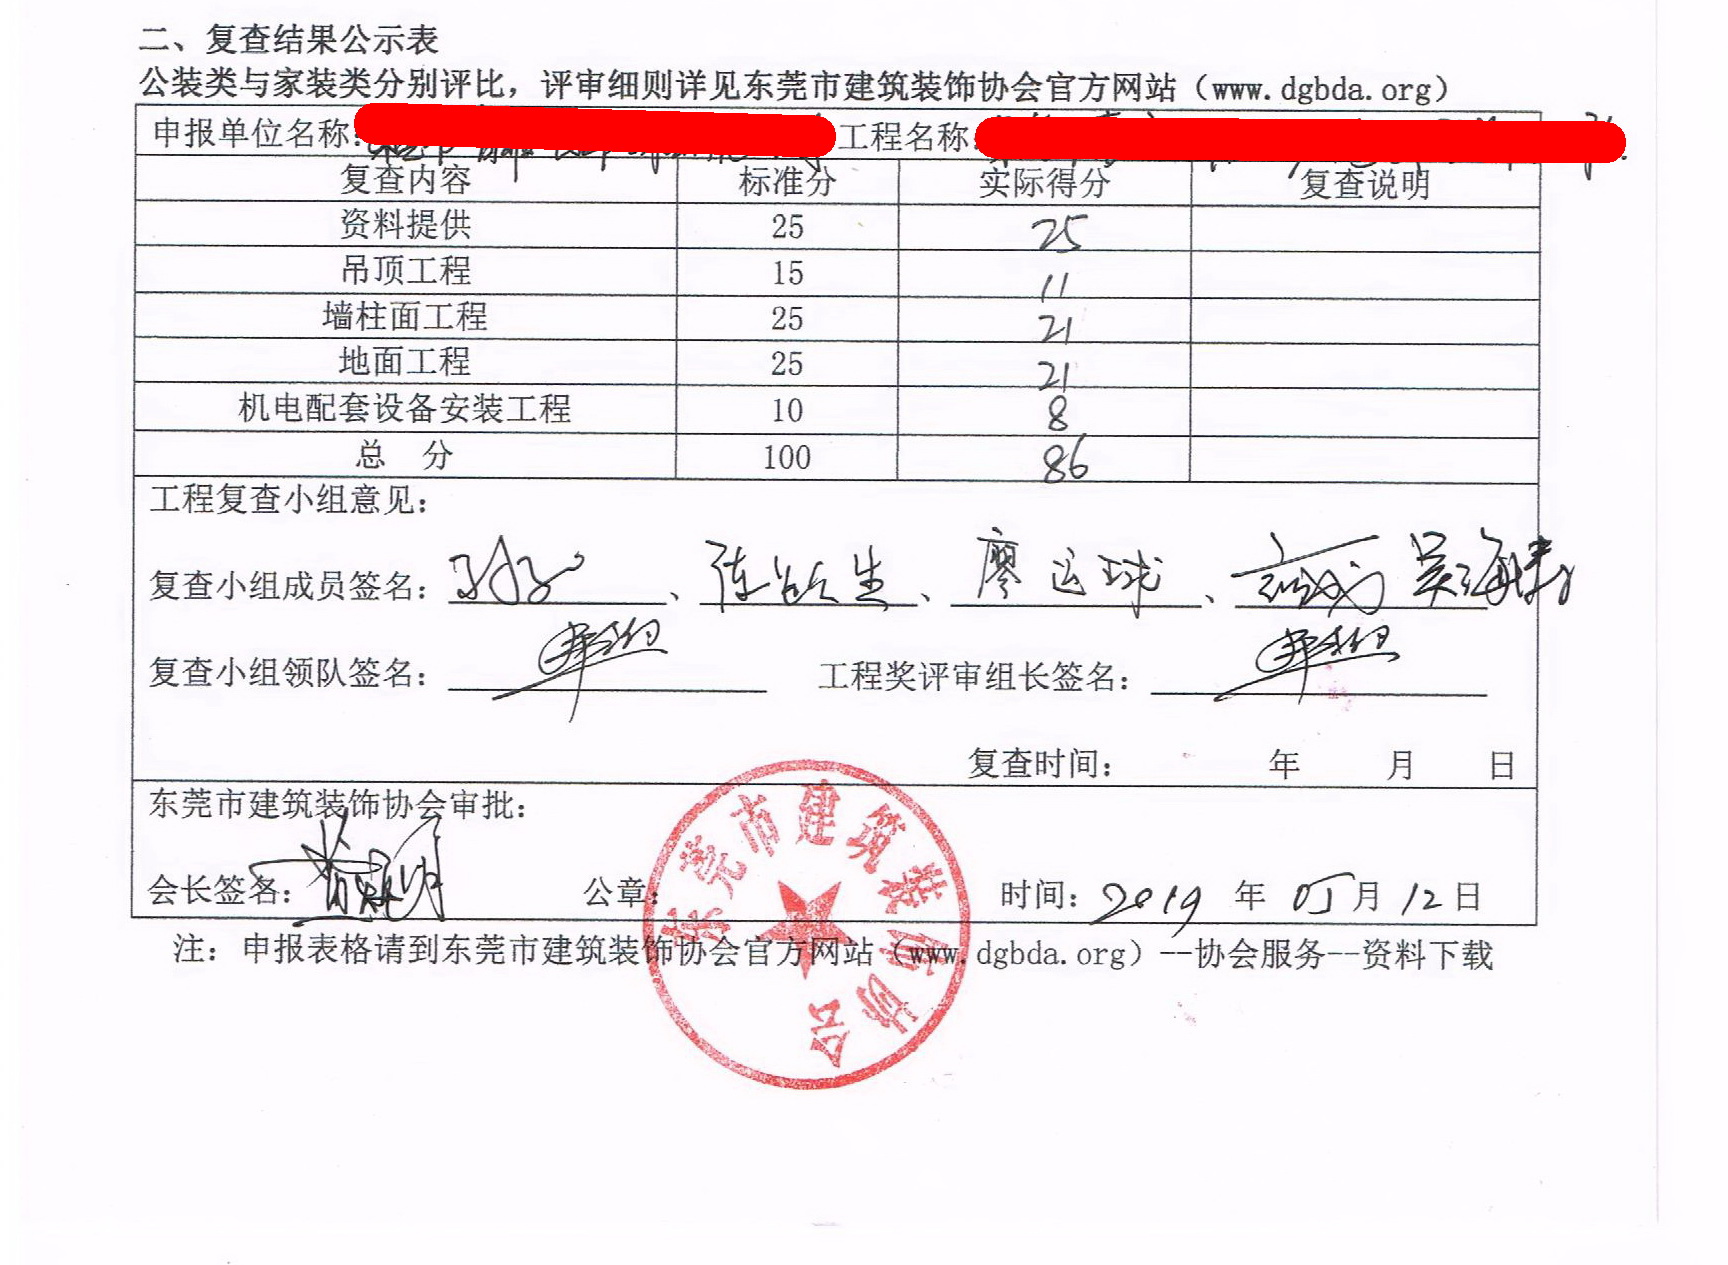 二、复查结果公示表
公装类与家装类分别评比，评审细则详见东莞市建筑装饰协会官方网站（www.dgbda.org）
申报单位名称: 工程名称:
复查内容 标准分 实际得分 复查说明
资料提供 25 25
吊顶工程 15 11
墙柱面工程 25 21
地面工程 25 21
机电配套设备安装工程 10 8
总 分 100 86
工程复查小组意见：
复查小组成员签名： 、 陈 生 、 廖运球 、 吴海
复查小组领队签名： 工程奖评审组长签名：
复查时间： 年 月 日
东莞市建筑装饰协会审批：
会长签名： 公章： 时间：2019 年 05 月 12 日
东莞市建筑装饰协会
注：申报表格请到东莞市建筑装饰协会官方网站（www.dgbda.org）--协会服务--资料下载